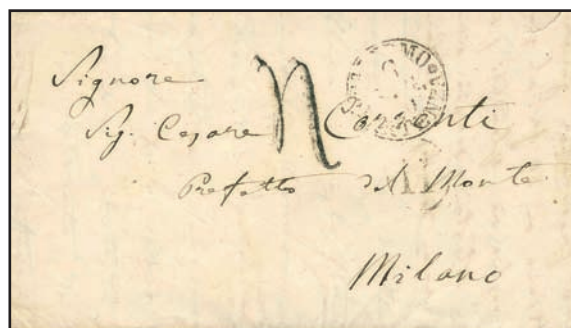 Signore
Sig. Cesare Correnti
Prefetto del Monte
Milano